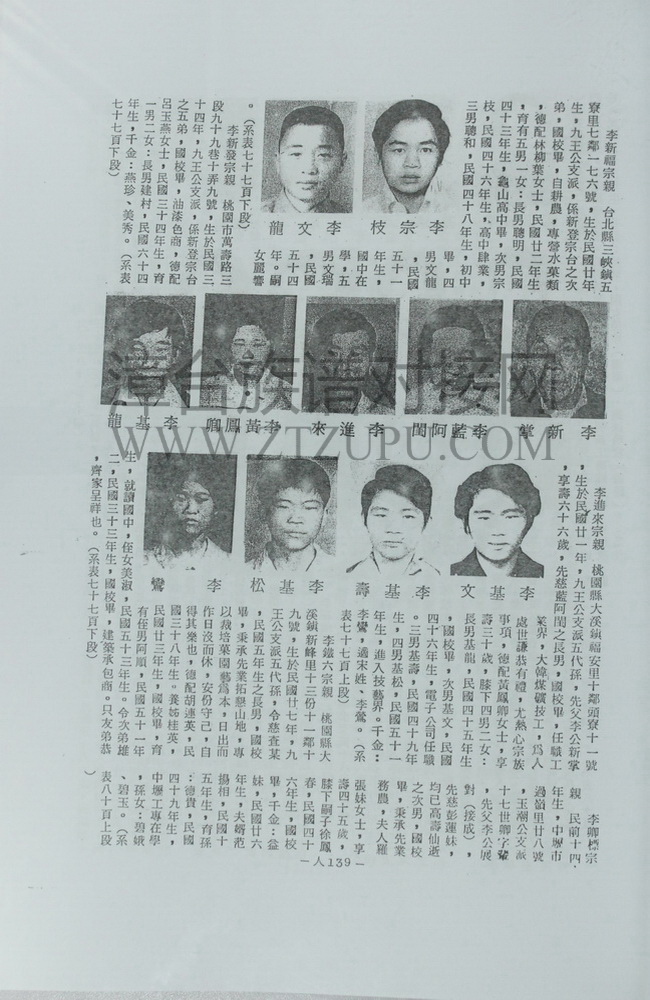 李新福宗親　台北縣三峽鎮五
寮里七鄰一七六號，生於民國廿年
生，九王公支派，係新登宗台之次
弟，國校畢，自耕農，專營水菓類
，德配林柳葉女士，民國廿二年生
，育有五男一女：長男聰明，民國
四十三年生，龜山高中畢，次男宗
枝，民國四十六年生，高中肄業，
三男聰和，民國四十八年生，初中
畢，四
男文龍
，民國
五十一
年生，
國中在
學，五
男文瑞
，民國
五十四
年。嗣
女麗響
。（系表七十七頁下段）
李宗枝
李文龍
李新發宗親　桃園市萬壽路三
段九十九巷十弄九號，生於民國三
十四年，九王公支派，係新登宗台
之五弟，國校畢，油漆色商，德配
呂玉燕女士，民國三十四年生，育
一男二女：長男建村，民國六十四
年生，千金：燕珍、美秀。（系表
七十七頁下段）
李新掌
李藍阿閏
李進來
李黃鳳卿
李基龍
漳台族谱对接网
WWW.ZTZUPU.COM
李進來宗親　桃園縣大溪鎮福安里十鄰頭寮十一號
，生於民國廿一年，九王公支派五代孫，先父李公新掌
，享壽六十六歲，先慈藍阿閏之長男，國校畢，任職工
業界，大韓煤礦技工，爲人
處世謙恭有禮，尤熱心宗族
事項，德配黃鳳卿女士，享
壽三十歲，膝下四男二女：
長男基龍，民國四十五年生
，國校畢，次男基文，民國
四十六年生，電子公司任職
。三男基壽，民國四十九年
生，四男基松，民國五十一
年生，進入技藝界。千金：
李鸞，適宋姓、李鶯。（系
表七十七頁上段）
李基文
李基壽
李基松
李鸞
李鐵六宗親　桃園縣大
溪鎮新峰里十三份十一鄰十
九號，生於民國廿七年，九
王公支派五代孫，令慈查某
，民國五年生之長男，國校
畢，秉承先業拓墾山地，專
以栽培菓園藝爲本，日出而
作日没而休，安份守己，自
得其樂也，德配胡連英，民
國三十八年生。養姊桂英，
民國廿三年生，國校畢，育
有侄男阿順，民國五十一年
生，就讀國中，侄女美淑，民國五十三年生。令次弟雄
二，民國三十三年生，國校畢，建築承包商。只友弟恭
，齊家呈祥也。（系表七十七頁下段）
李卿標宗
親　民前十四
年生，中壢市
過嶺里廿八號
，玉潮公支派
十七世卿字輩
，先父李公展
對（接成），
先慈彭運妹，
均已高壽仙逝
之次男，國校
畢，秉承先業
務農，夫人羅
張妹女士，享
壽四十五歲，
膝下嗣子徐鳳
春，民國四十
六年生，國校
畢，千金：益
妹，民國廿六
年生，夫婿范
揚相，民國十
五年生，育孫
：德貴，民國
四十九年生，
中壢工專在學
，孫女：碧娥
、碧玉。（系
表八十頁上段
）
－人139－